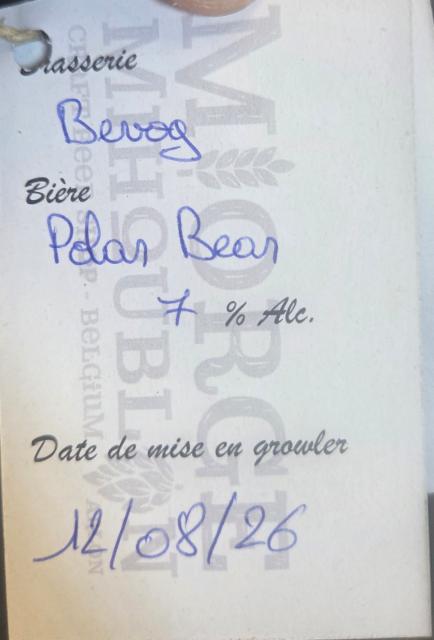 Brasserie
Bevog
Bière
Polar Bear
7 % Alc.
Date de mise en growler
12/08/26
MIORGE
MIHOUBLON
CRAFT BEER SHOP - BELGIUM